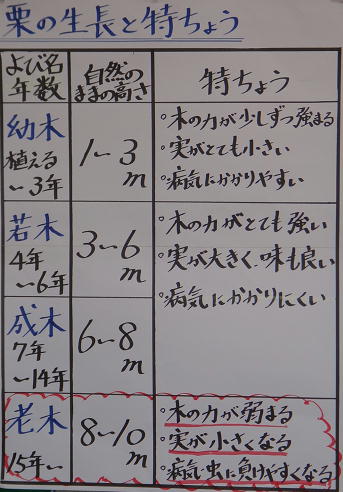 栗の生長と特ちょう
よび名
年数
自然の
ままの高さ
特ちょう
幼木
植える
〜3年
1〜3
m
°木の力が少しずつ強まる
°実がとても小さい
°病気にかかりやすい
若木
4年
〜6年
3〜6
m
°木の力がとても強い
°実が大きく、味も良い
°病気にかかりにくい
成木
7年
〜14年
6〜8
m
老木
15年〜
8〜10
m
°木の力が弱まる
°実が小さくなる
°病気・虫に負けやすくなる